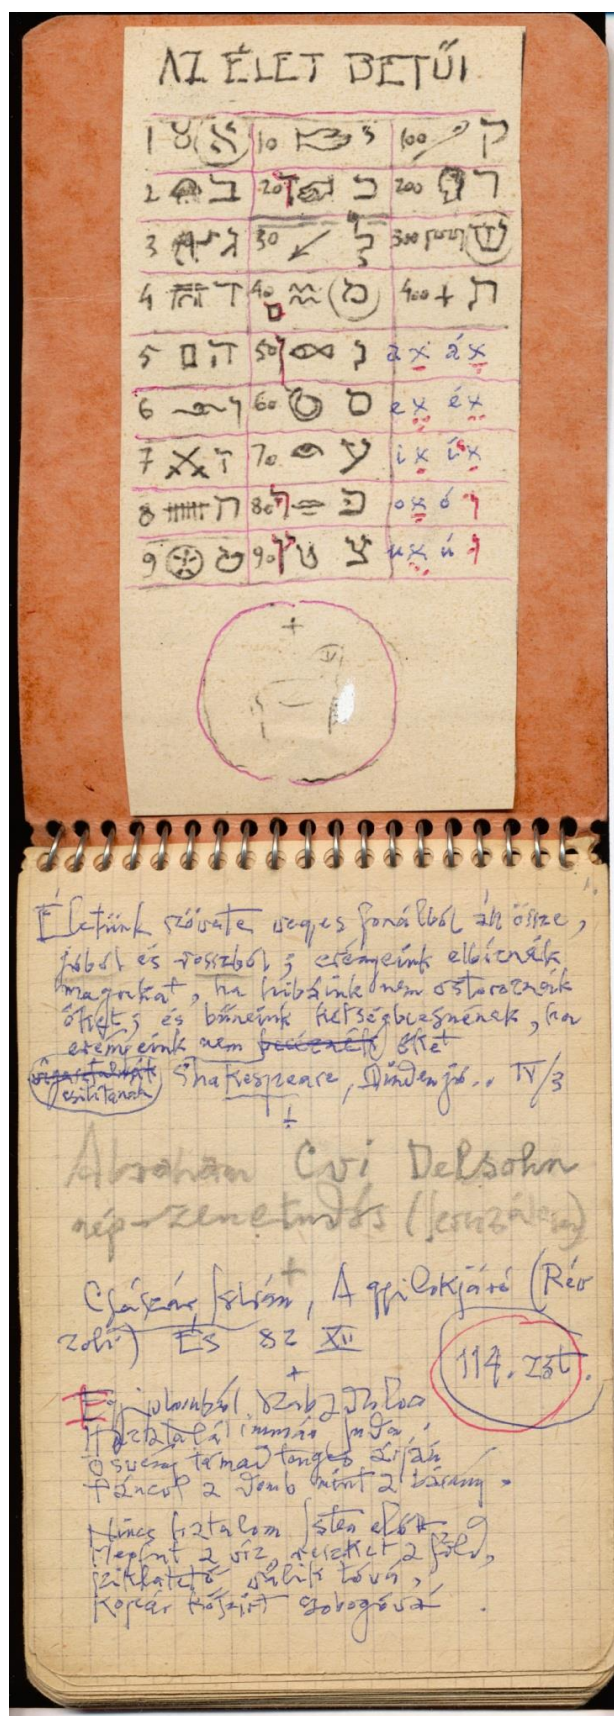 AZ ÉLET BETŰI
1 א 10 י 100 ק
2 ב 20 ך כ 200 ר
3 ג 30 ל 300 ש
4 ד 40 ם מ 400 ת
5 ה 50 ן נ a x á x
6 ו 60 ס e x é x
7 ז 70 ע i x í x
8 ח 80 ף פ o x ó ו
9 ט 90 ץ צ u x ú ו
1.
Életünk szövete vegyes fonálból áll össze,
jóból és rosszból; erényeink elbíznák
magukat, ha hibáink nem ostoroznák
őket; és bűneink kétségbeesnének, ha
erényeink nem őket
csitítanák Shakespeare, Minden jó.. IV/3
Abrahám Cvi Delsohn
nép-zenetudós (Jeruzsálem)
Császár István, A gyilokjáró (Rév
zoli) ÉS 82 XII
114. zst.
Egyiptomból szabadulva
Hazatalál immár Juda,
Ösvény támad tenger árján
Táncol a domb mint a bárány.
Nincs hatalom Isten előtt
Megfut a víz, reszket a föld,
Sziklatető válik tóvá,
Kopár kőszirt zubogóvá.